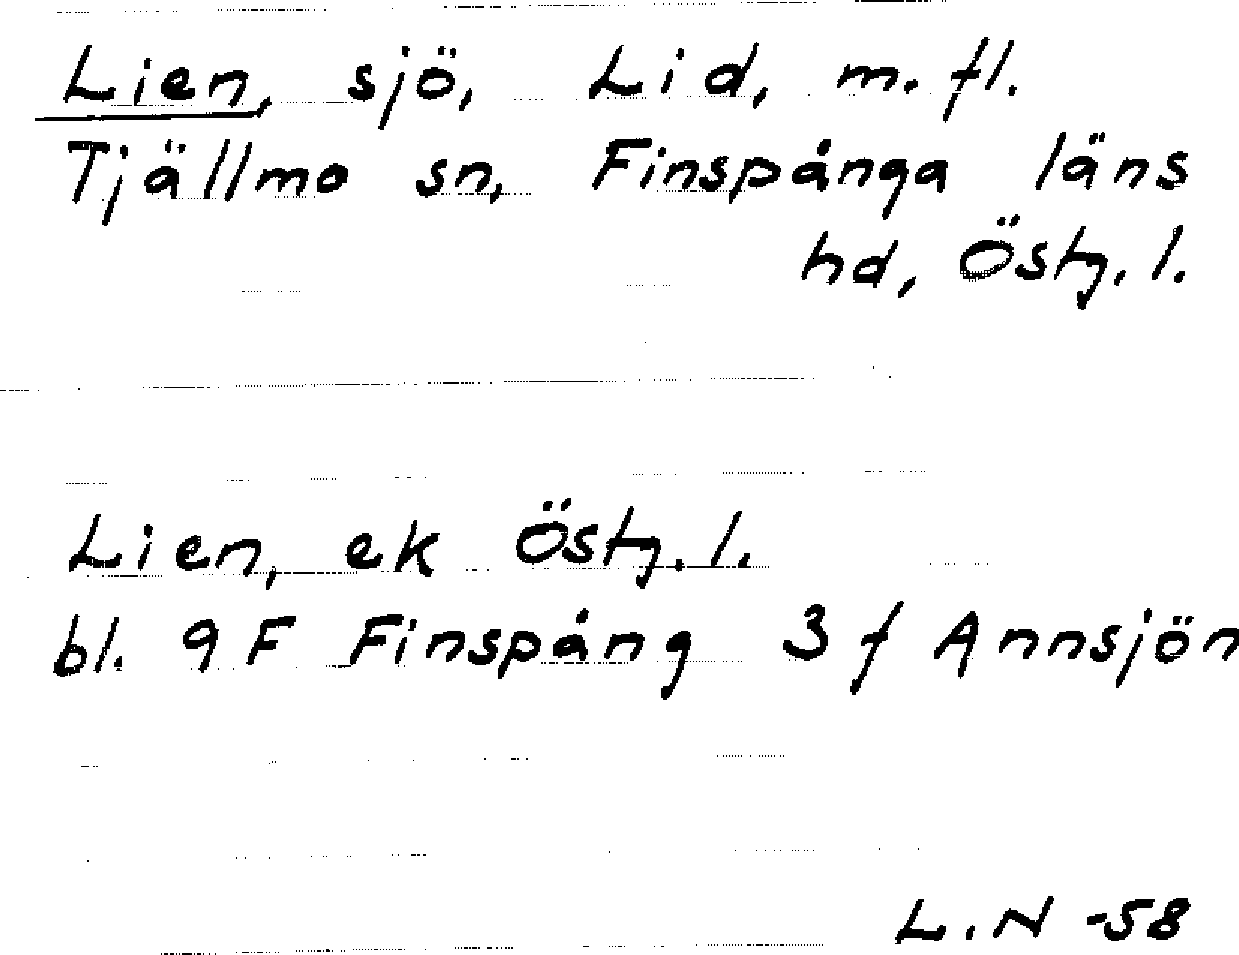 Lien, sjö, Lid, m. fl.
Tjällmo sn, Finspånga läns
hd, Östg. l.
Lien, ek Östg. l.
bl. 9 F Finspång 3 f Annsjön
L. N -58